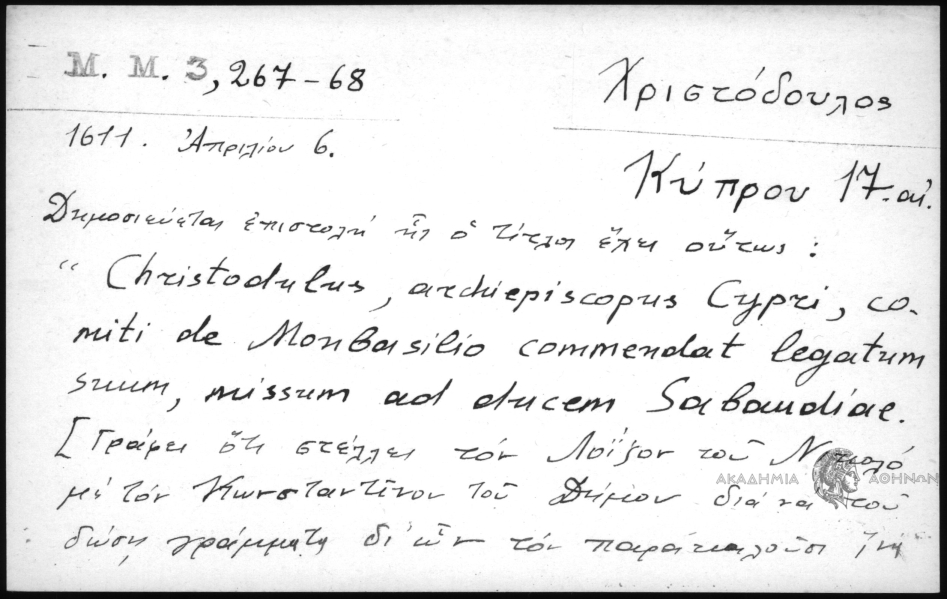 M. M. 3, 267-68
Χριστόδουλος
1611. Ἀπριλίου 6.
Κύπρου 17. αἰ.
Δημοσιεύεται ἐπιστολή ἧς ὁ τίτλος ἔχει οὕτως :
“ Christodulus, archiepiscopus Cypri, co-
miti de Monbasilio commendat legatum
suum, missum ad ducem Sabaudiae.
[Γράφει ὅτι στέλλει τόν Λοΐζον τοῦ Νικολό
μέ τόν Κωνσταντῖνον τοῦ Δήμου διά να τοῦ
δώσῃ γράμματα δι' ὧν τόν παρακαλοῦσι
ΑΚΑΔΗΜΙΑ ΑΘΗΝΩΝ